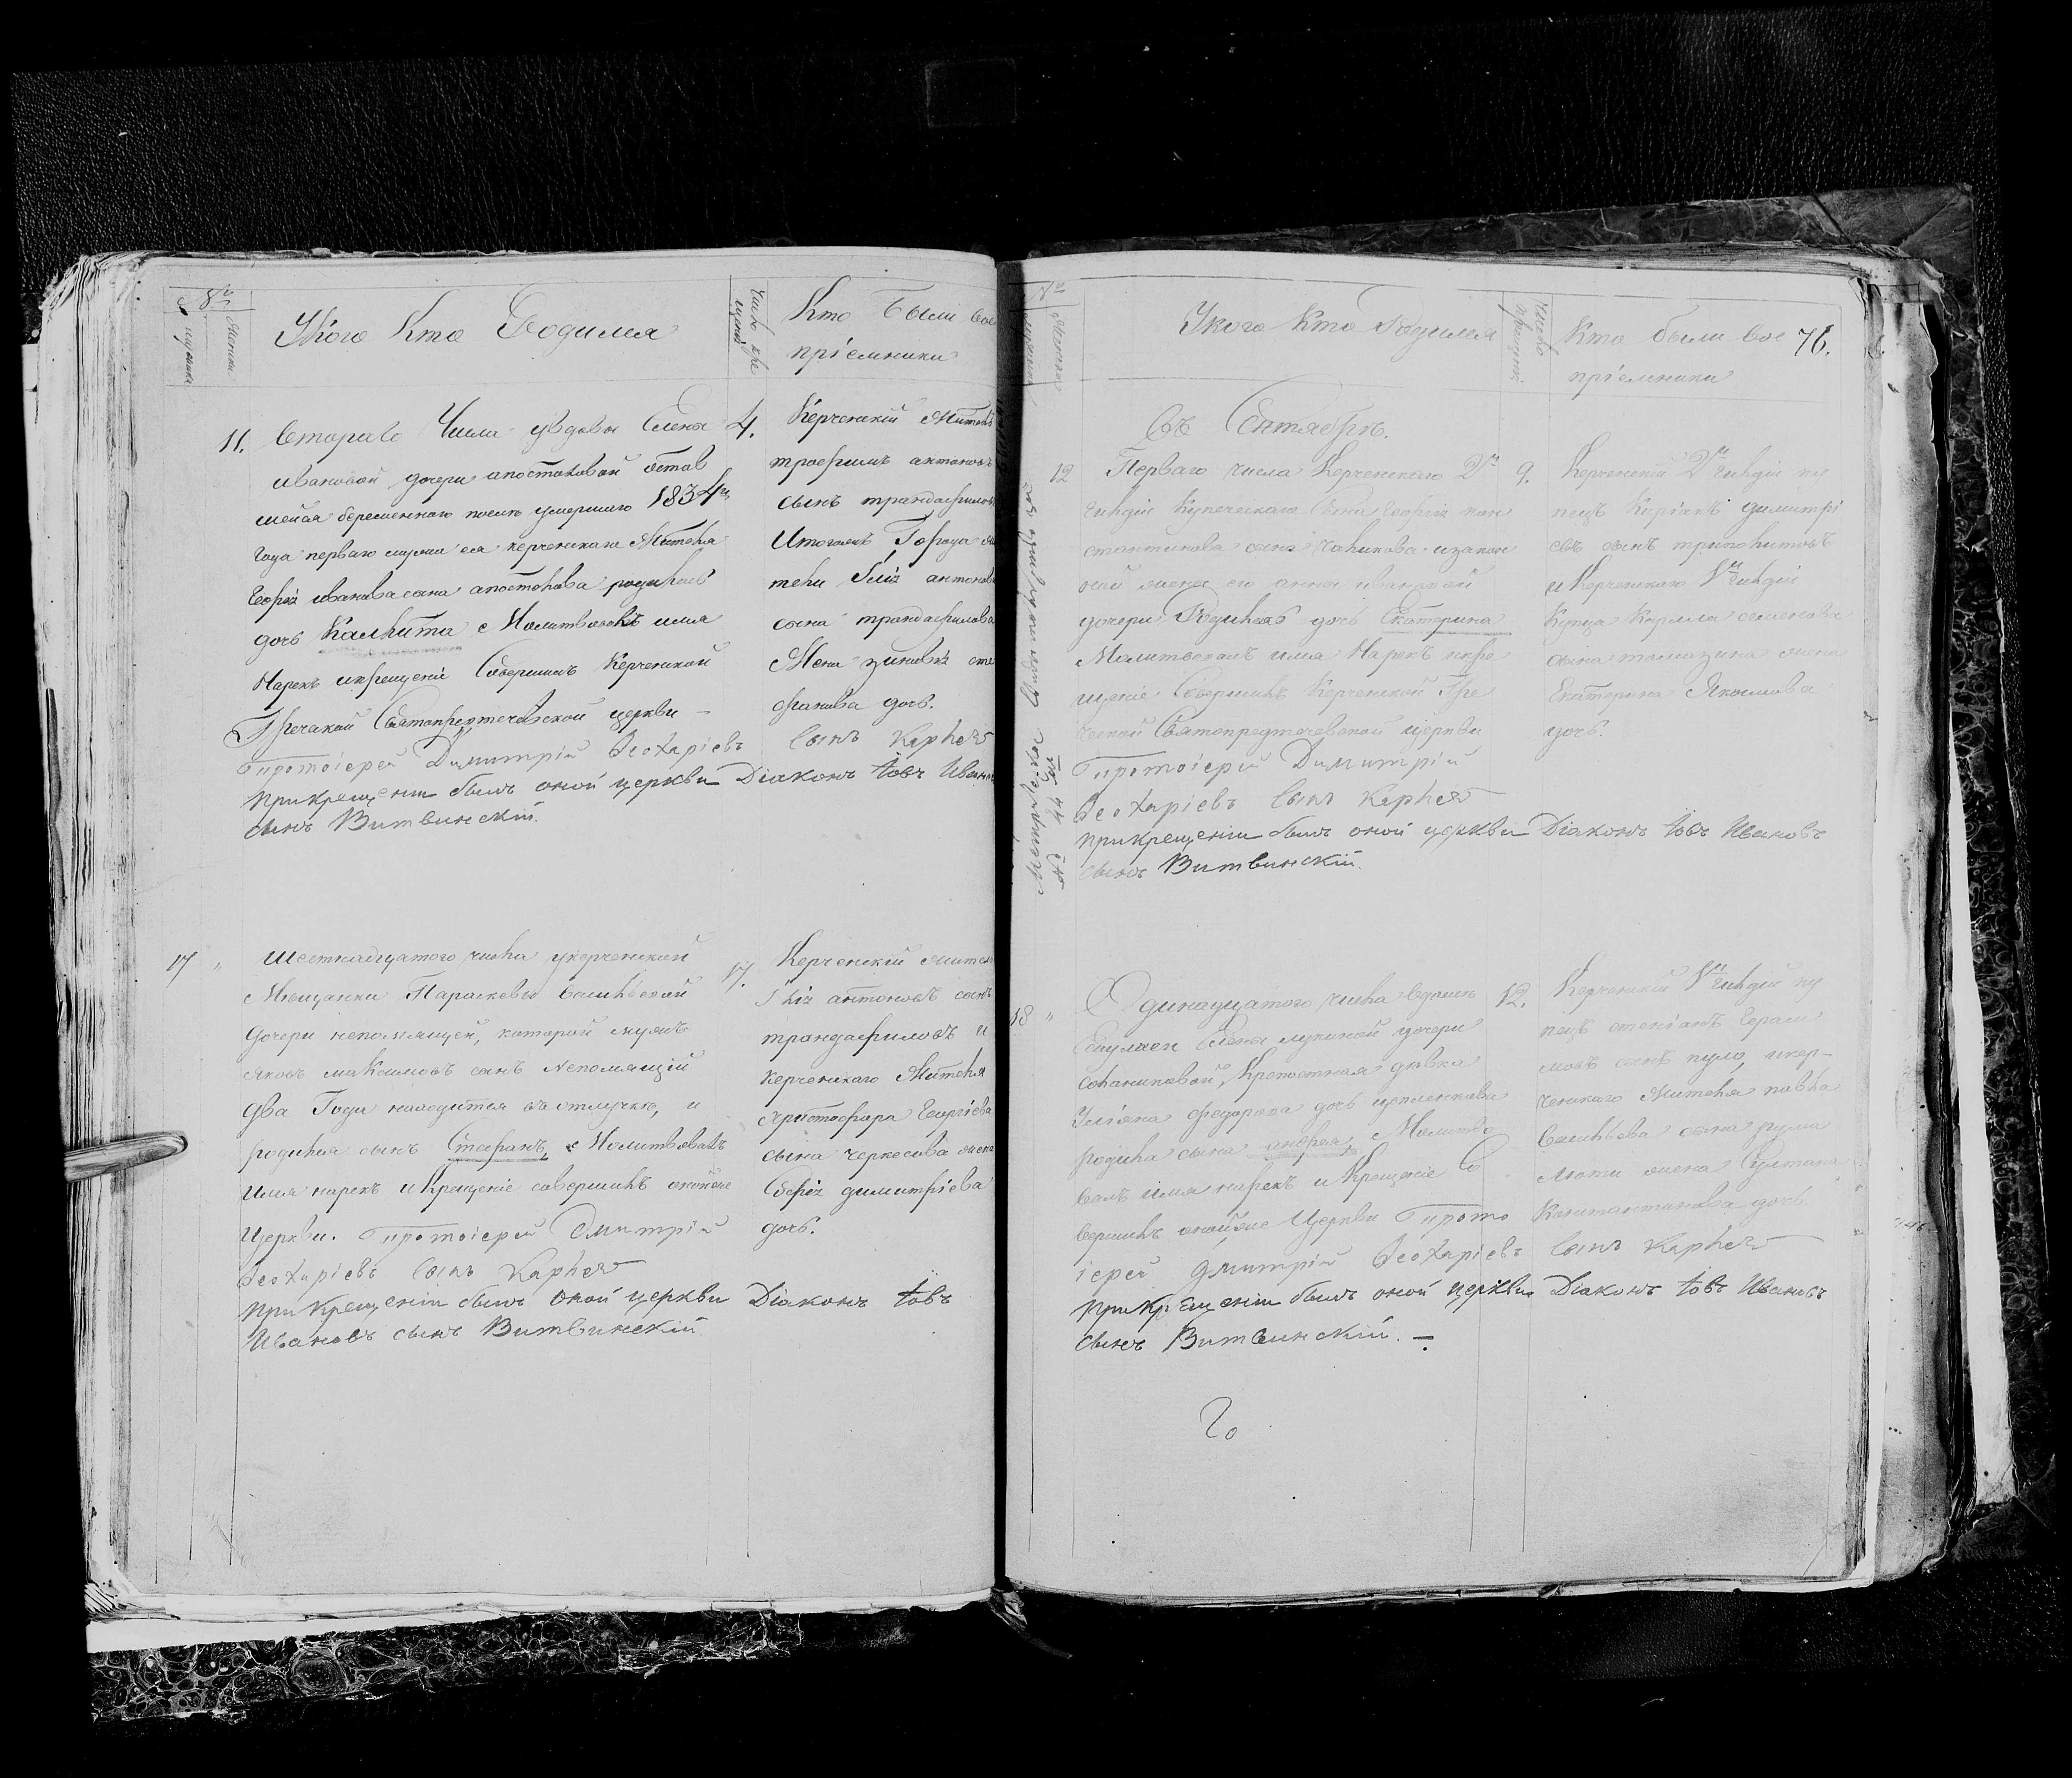 №
мужска
Женска
У Кого Кто Родился
Число кре
щенія
Кто Были вос
пріемники
11. втораго Числа увдовы Елены 4.
ивановой дочери апостоловой остав
шейся беременною послѣ умершаго 1834го
года перваго мужа ея керченскаго Жителя
Георгія иванова сына апостолова родилась
дочь Калиста Молитвовалъ имя
Нарекъ икрещеніе Совершилъ Керченской
Греческой Святопредтечевской церкви
протоіерей Димитрій Ѳеохаріевъ сынъ
при крещеніи былъ оной церкви Діаконъ Іовъ Иванов
сынъ Витвинскій.
Керченскій Житель
трофимъ антоновъ
сынъ трандафиловъ
Итогожъ Города жи
теля Иліи антонова
сына трандафилова
Жена зиновія сте
фанова дочь.
17 " Шестнадцатого числа укерченской 17.
Мѣщанки Параскевы васильевой
дочери непомнящей, которой мужъ
яковъ максимовъ сынъ Непомнящій
два Года находится въ отлучкѣ, и
родился сынъ Стефанъ, Молитвовалъ
имя нарекъ и Крещеніе совершилъ оной же
Церкви. протоіерей Дмитрій
Ѳеохаріевъ сынъ
при Крещеніи былъ оной церкви Діаконъ Іовъ
Ивановъ сынъ Витвинскій.
Керченскій жител
Илія антоновъ сынъ
трандафиловъ и
Керченскаго Жителя
Христофора Георгіева
сына черкесова жена
Софія димитріева
дочь.
№
Женска
У кого Кто Родился
Число
Крещенія
Кто были вос
пріемники
76.
Въ Сентябрѣ.
12 Перваго числа Керченскаго 2й 9.
гильдіи Купеческаго сына Георгія кон
стантинова сына изакон
ной жены его анны ивановой
дочери Родилась дочь Екатерина
Молитвовалъ имя Нарекъ икре
щеніе Совершилъ Керченской Гре
ческой Святопредтечевской церкви
Протоіерей Димитрій
Ѳеохаріевъ сынъ
при крещеніи былъ оной церкви Діаконъ Іовъ Ивановъ
сынъ Витвинскій.
Керченскій 2й гильдіи ку
пецъ Киріакъ димитрі
евъ сынъ триполитовъ
и Керченскаго 1й гильдіи
Купца Карпа семенова
сына томазина жена
Екатерина Якимова
дочь.
44 года
18 " Одинадцатого числа 12.
Елены лукиной дочери
Крепостная дѣвка
Ульяна федорова дочь
родила сына андрея, Молитво
валъ имя нарекъ и Крещеніе Со
вершилъ оной же Церкви Прото
іерей дмитрій Ѳеохаріевъ сынъ
при Крещеніи былъ оной церкви Діаконъ Іовъ Ивановъ
сынъ Витвинскій.
Керченскій 1й гильдіи ку
пецъ Гераси
мовъ сынъ пуло, икер-
ченскаго Жителя павла
Васильева сына
жена Султана
Константинова дочь